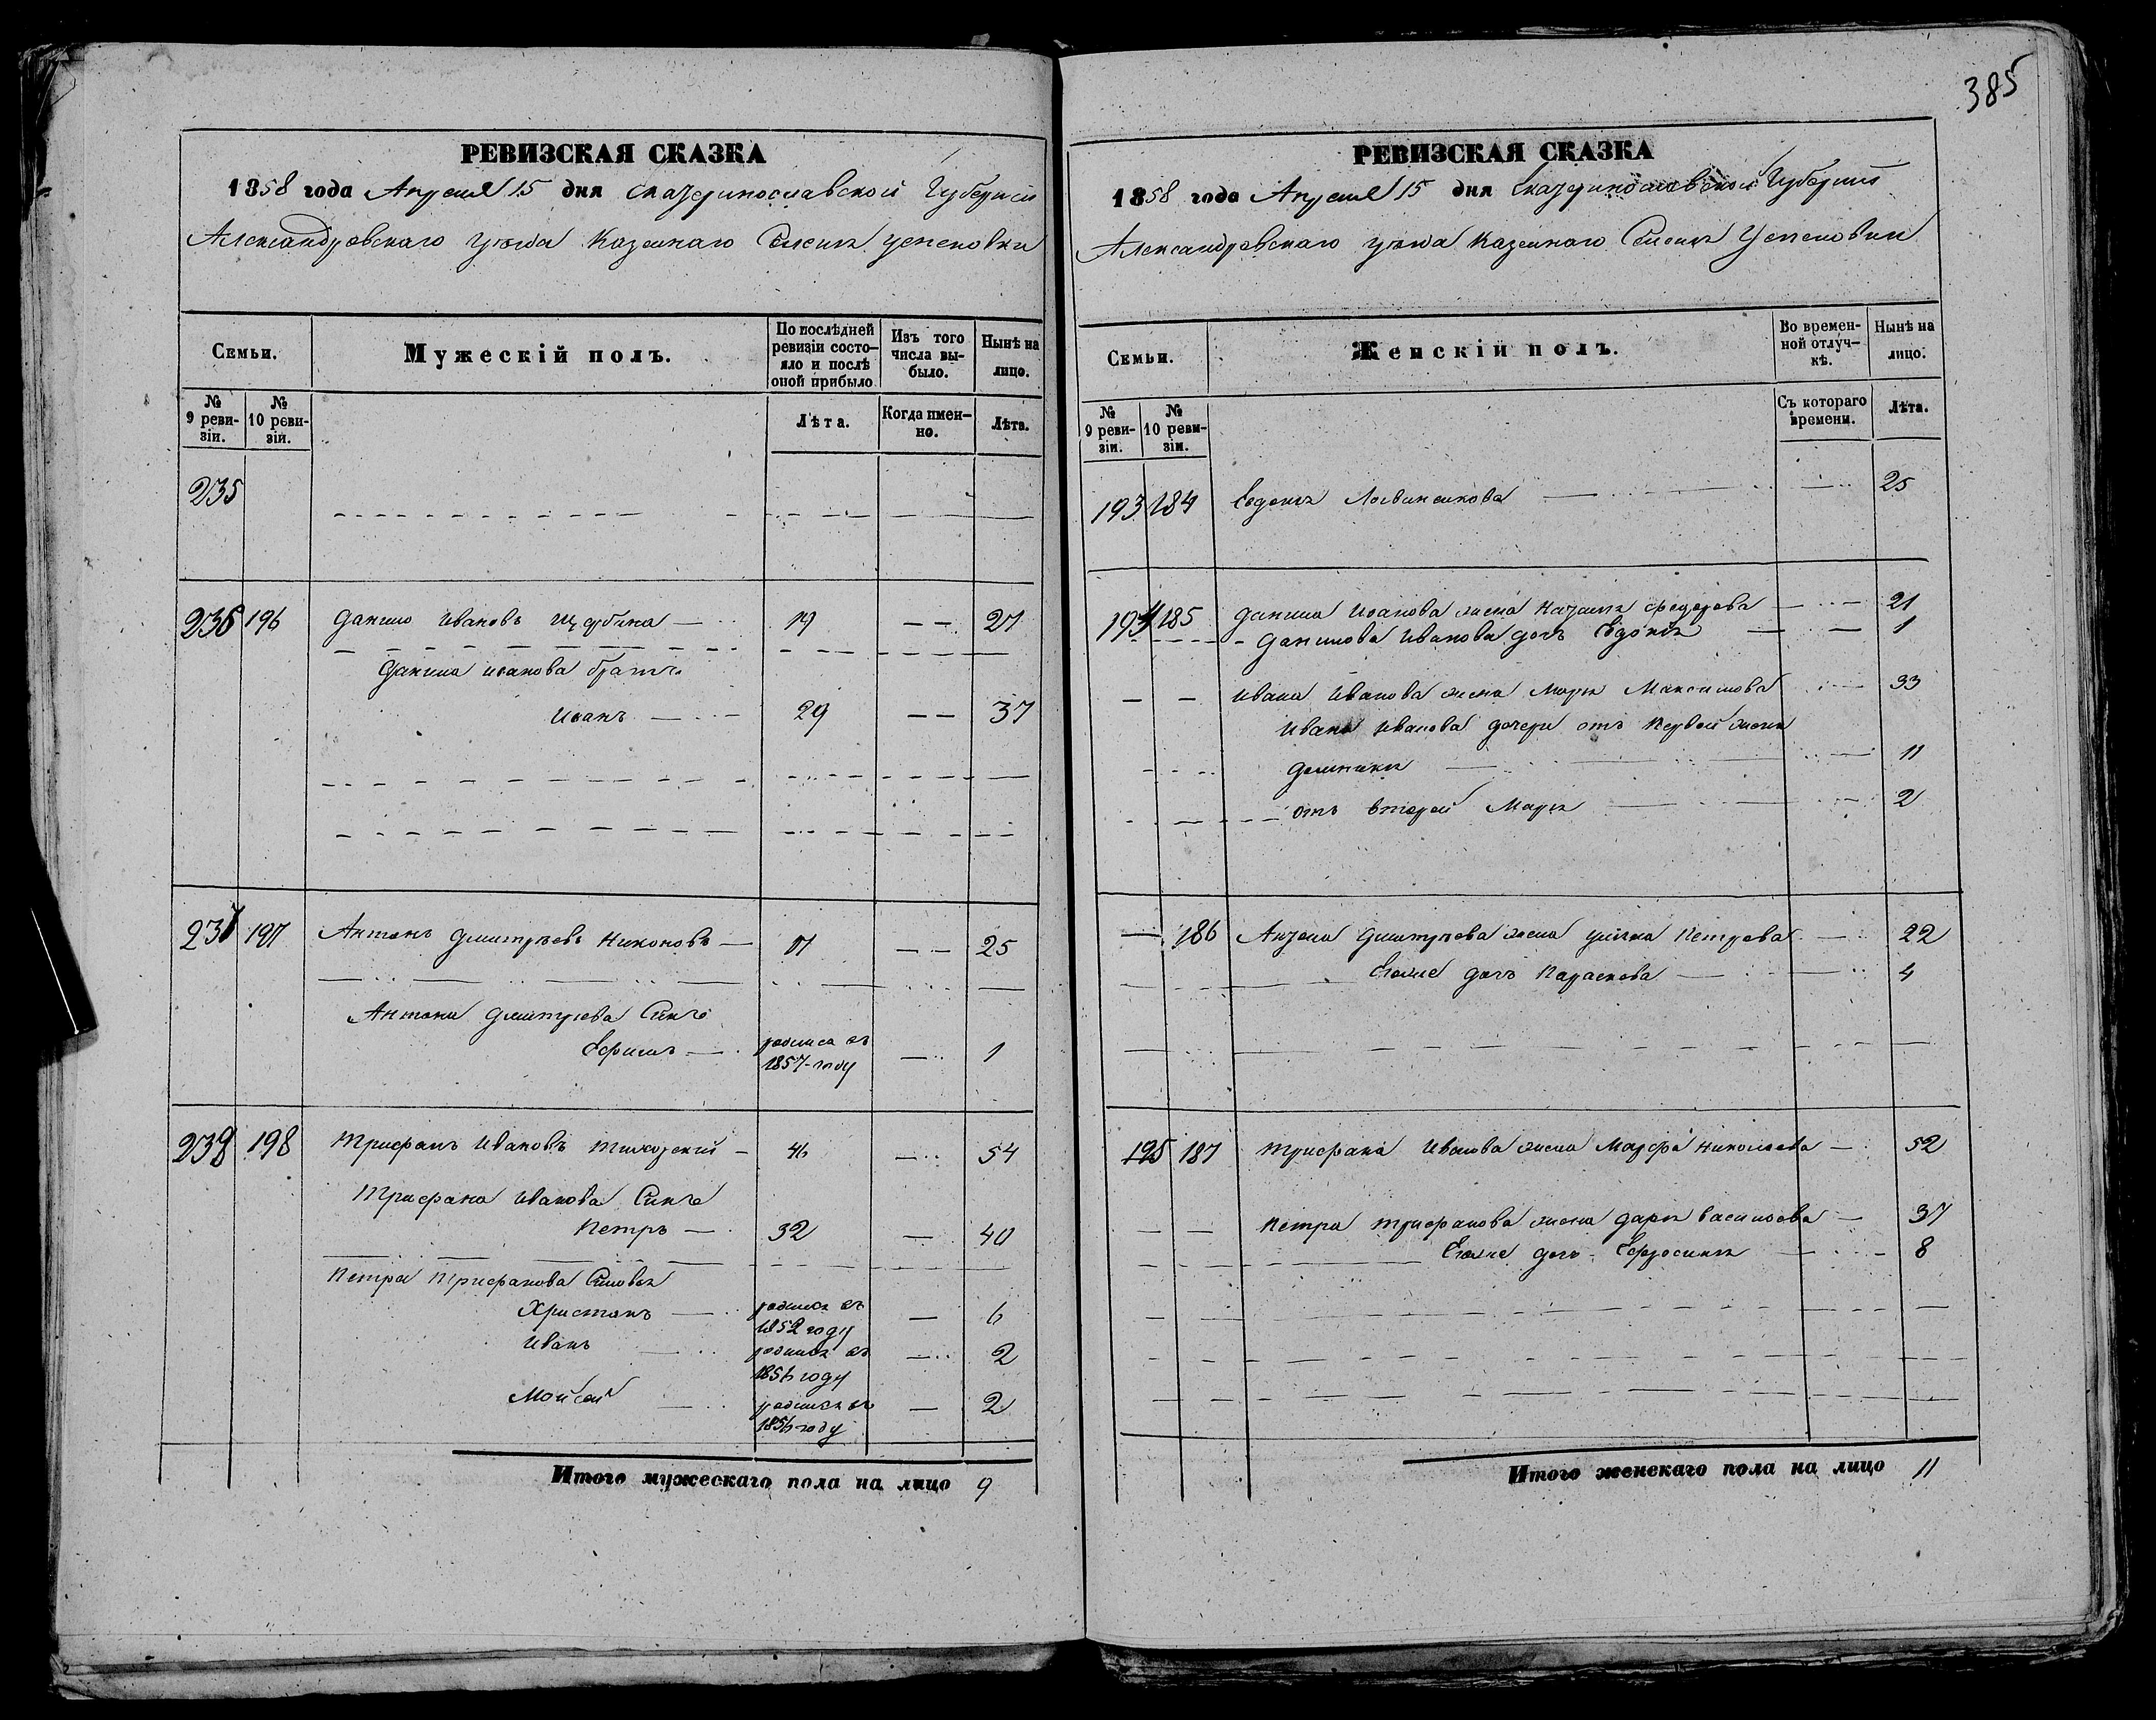 385
РЕВИЗСКАЯ СКАЗКА
1858 года Апреля 15 дня Екатеринославской Губернiи
Александровскаго уезда Казеннаго Селенiя Успеновки
Семьи.
Мужескiй полъ.
По послѣдней ревизiи состояло и послѣ оной прибыло
Изъ того числа выбыло.
Нынѣ на лицо.
№ 9 ревизiи.
№ 10 ревизiи.
Лѣта.
Когда именно.
Лѣта.
235
236 196 Данило Ивановъ Щербина 19 27
Данила Иванова братъ
Иванъ 29 37
237 197 Антонъ Дмитрiевъ Никоновъ 17 25
Антона Дмитрiева Синъ
Ефимъ родился въ 1857 году 1
238 198 Трифанъ Ивановъ 46 54
Трифана Иванова Синъ
Петръ 32 40
Петра Трифанова Синовья
Христанъ родился въ 1852 году 6
Иванъ родился въ 1856 году 2
Мойсей родился въ 1856 году 2
Итого мужескаго пола на лицо 9
РЕВИЗСКАЯ СКАЗКА
1858 года Апреля 15 дня Екатеринославской Губернiи
Александровскаго уезда Казеннаго Селенiя Успеновки
Семьи.
Женскiй полъ.
Во временной отлучкѣ.
Нынѣ на лицо.
№ 9 ревизiи.
№ 10 ревизiи.
Съ котораго времени.
Лѣта.
193 184 Евдокiя Логвиненкова 25
194 185 Данила Иванова жена Федорова 21
Данилова Иванова дочь Евдокiя 1
Ивана Иванова жена Марiя Максимова 33
Ивана Иванова дочери отъ первой жены
Домникiя 11
отъ второй Марiя 2
186 Антона Дмитрiева жена Улiяна Петрова 22
Егоже дочь Параскева 4
195 187 Трифана Иванова жена Марфа Николаева 52
Петра Трифанова жена Дарiя Василiева 37
Егоже дочь Ефросинiя 8
Итого женскаго пола на лицо 11